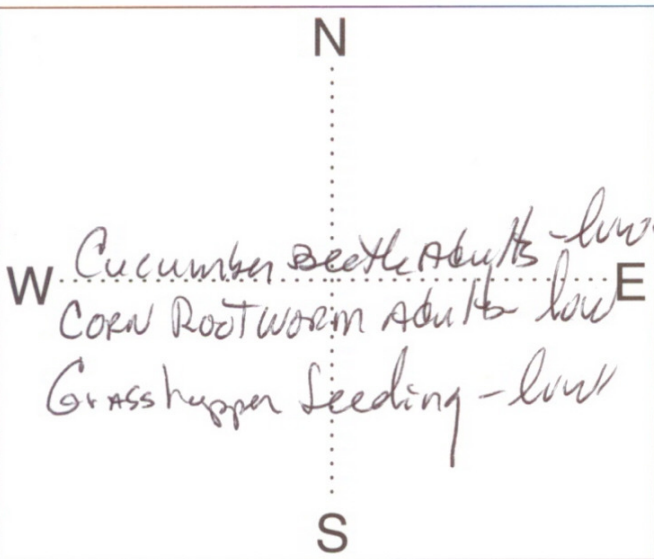 N
Cucumber Beetle Adults - low
W E
CORN ROOTWORM Adults low
Grasshopper feeding - low
S